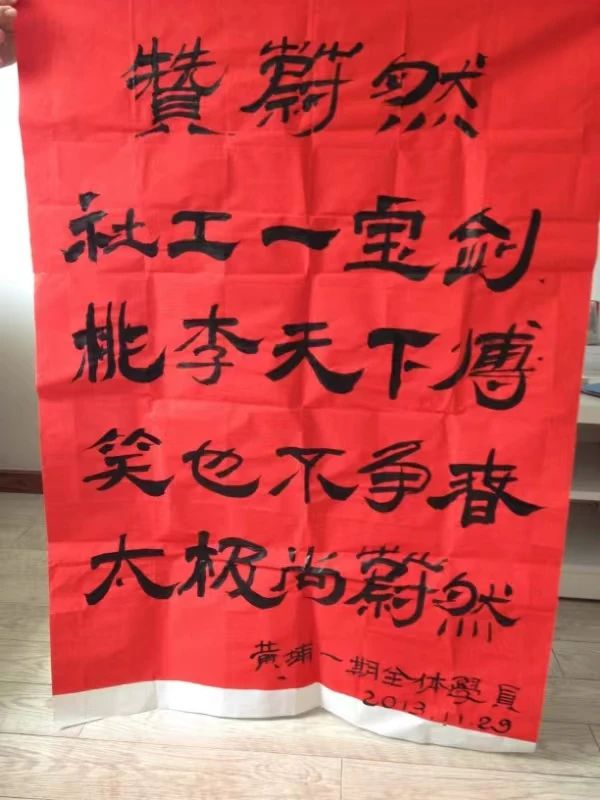 贊蔚然
社工一宝剑
桃李天下傅
笑也不争春
太极尚蔚然
黄埔一期全体學員
2013.11.29